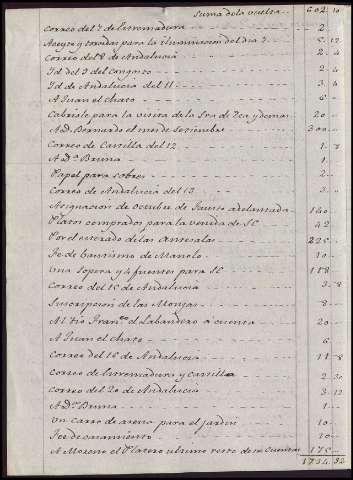 Suma de la vuelta 602 10
Correo del 7 de Estremadura 2
Aceyte y torcidas para la iluminacion del dia 7 5 12
Correo del 8 de Andalucia 2 4
Id del 9 del Congreso 2 4
Id de Andalucia del 11 3 4
A Juan el chato 6
Cabriolé para la visita de la Sra de Zea y demas 20
A Dn Bernardo el mes de Setiembre 300
Correo de Castilla del 12 1 8
A da Bruna 1
Papel para sobres 2
Correo de Andalucia del 13 3
Asignacion de Octubre de adelantada 140
Platos comprados para la venida de SE 42
Por el esterado de las antesalas 225
Fe de bautismo de Manolo 10
Una Sopera y 4 fuentes para SE 118
Correo del 15 de Andalucia 3 8
Suscripcion de las Monjas 8
Al tio Franco el Labandero á cuenta 20
A Juan el chato 6
Correo del 18 de Andalucia 11 8
Correo de Estremadura y Castilla 2
Correo del 20 de Andalucia 3 12
A da Bruna 1
Un carro de arena para el jardin 10
Fee de casamiento 10
A Moreno el Platero ultimo resto de su Cuenta 175
1734 32